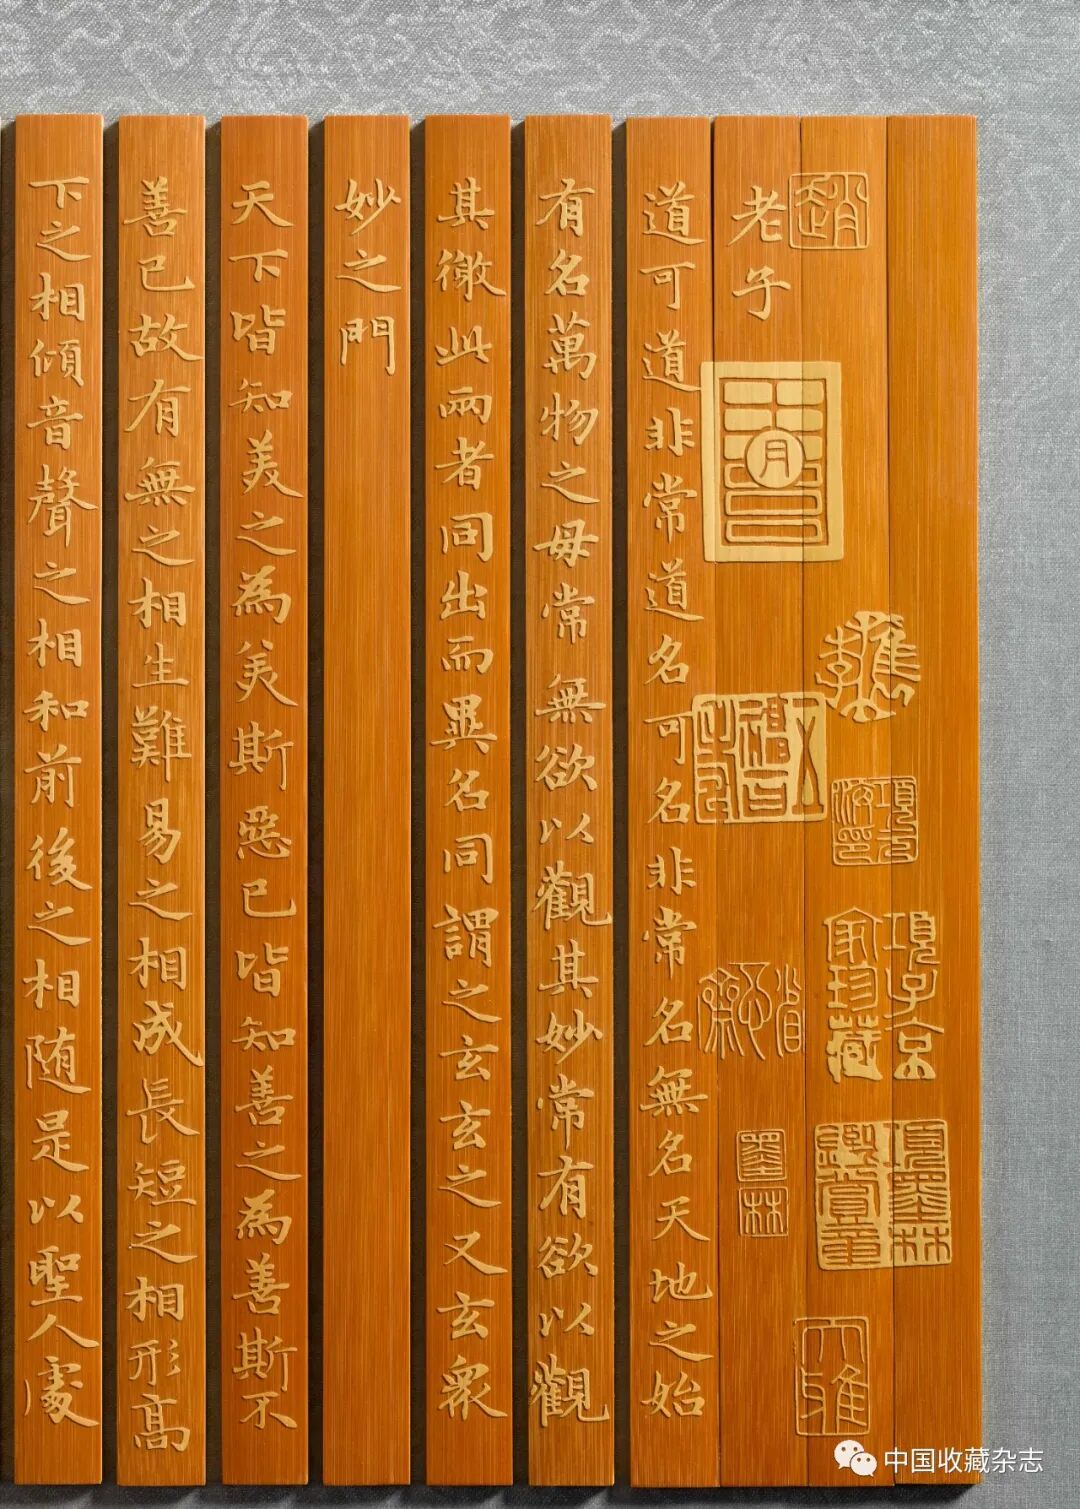 趙
檇李
項元汴印
項子京家珍藏
項墨林鑑賞章
大雅
老子
墨林
道可道非常道名可名非常名無名天地之始
有名萬物之母常無欲以觀其妙常有欲以觀
其徼此兩者同出而異名同謂之玄玄之又玄衆
妙之門
天下皆知美之為美斯惡已皆知善之為善斯不
善已故有無之相生難易之相成長短之相形高
下之相傾音聲之相和前後之相随是以聖人處
中国收藏杂志